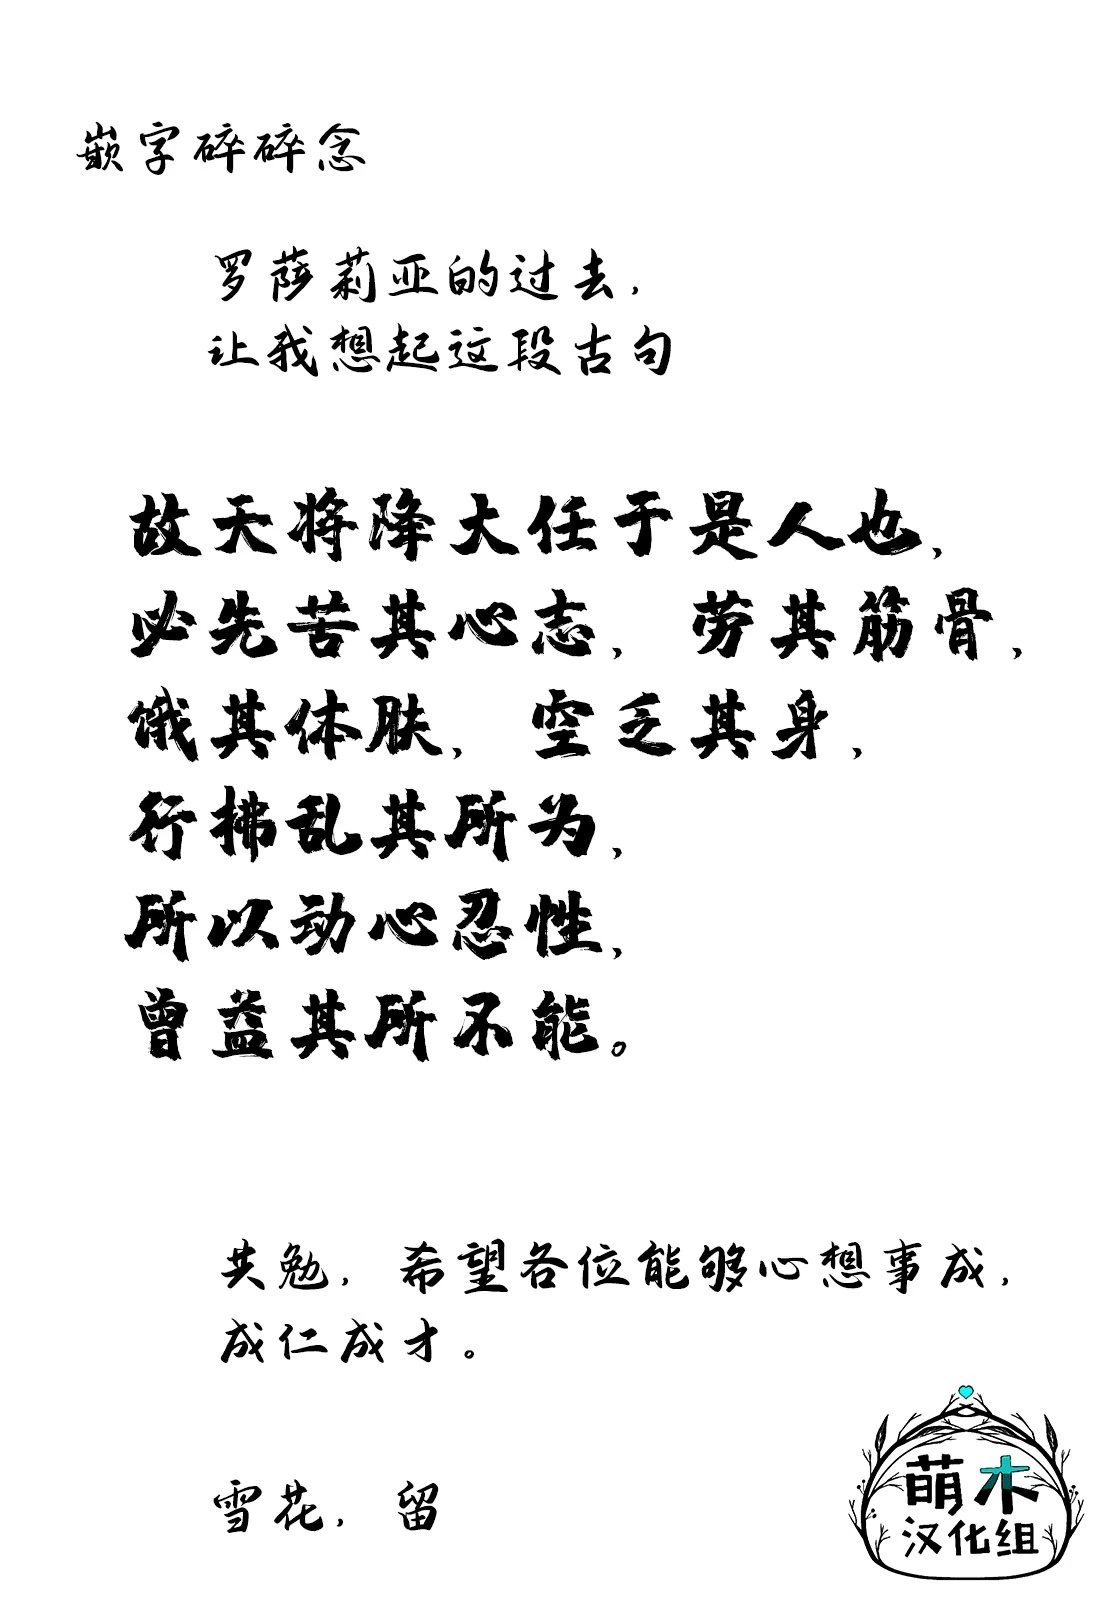 嵌字碎碎念
罗萨莉亚的过去，
让我想起这段古句
故天将降大任于是人也，
必先苦其心志，劳其筋骨，
饿其体肤，空乏其身，
行拂乱其所为，
所以动心忍性，
曾益其所不能。
共勉，希望各位能够心想事成，
成仁成才。
雪花，留
萌木
汉化组